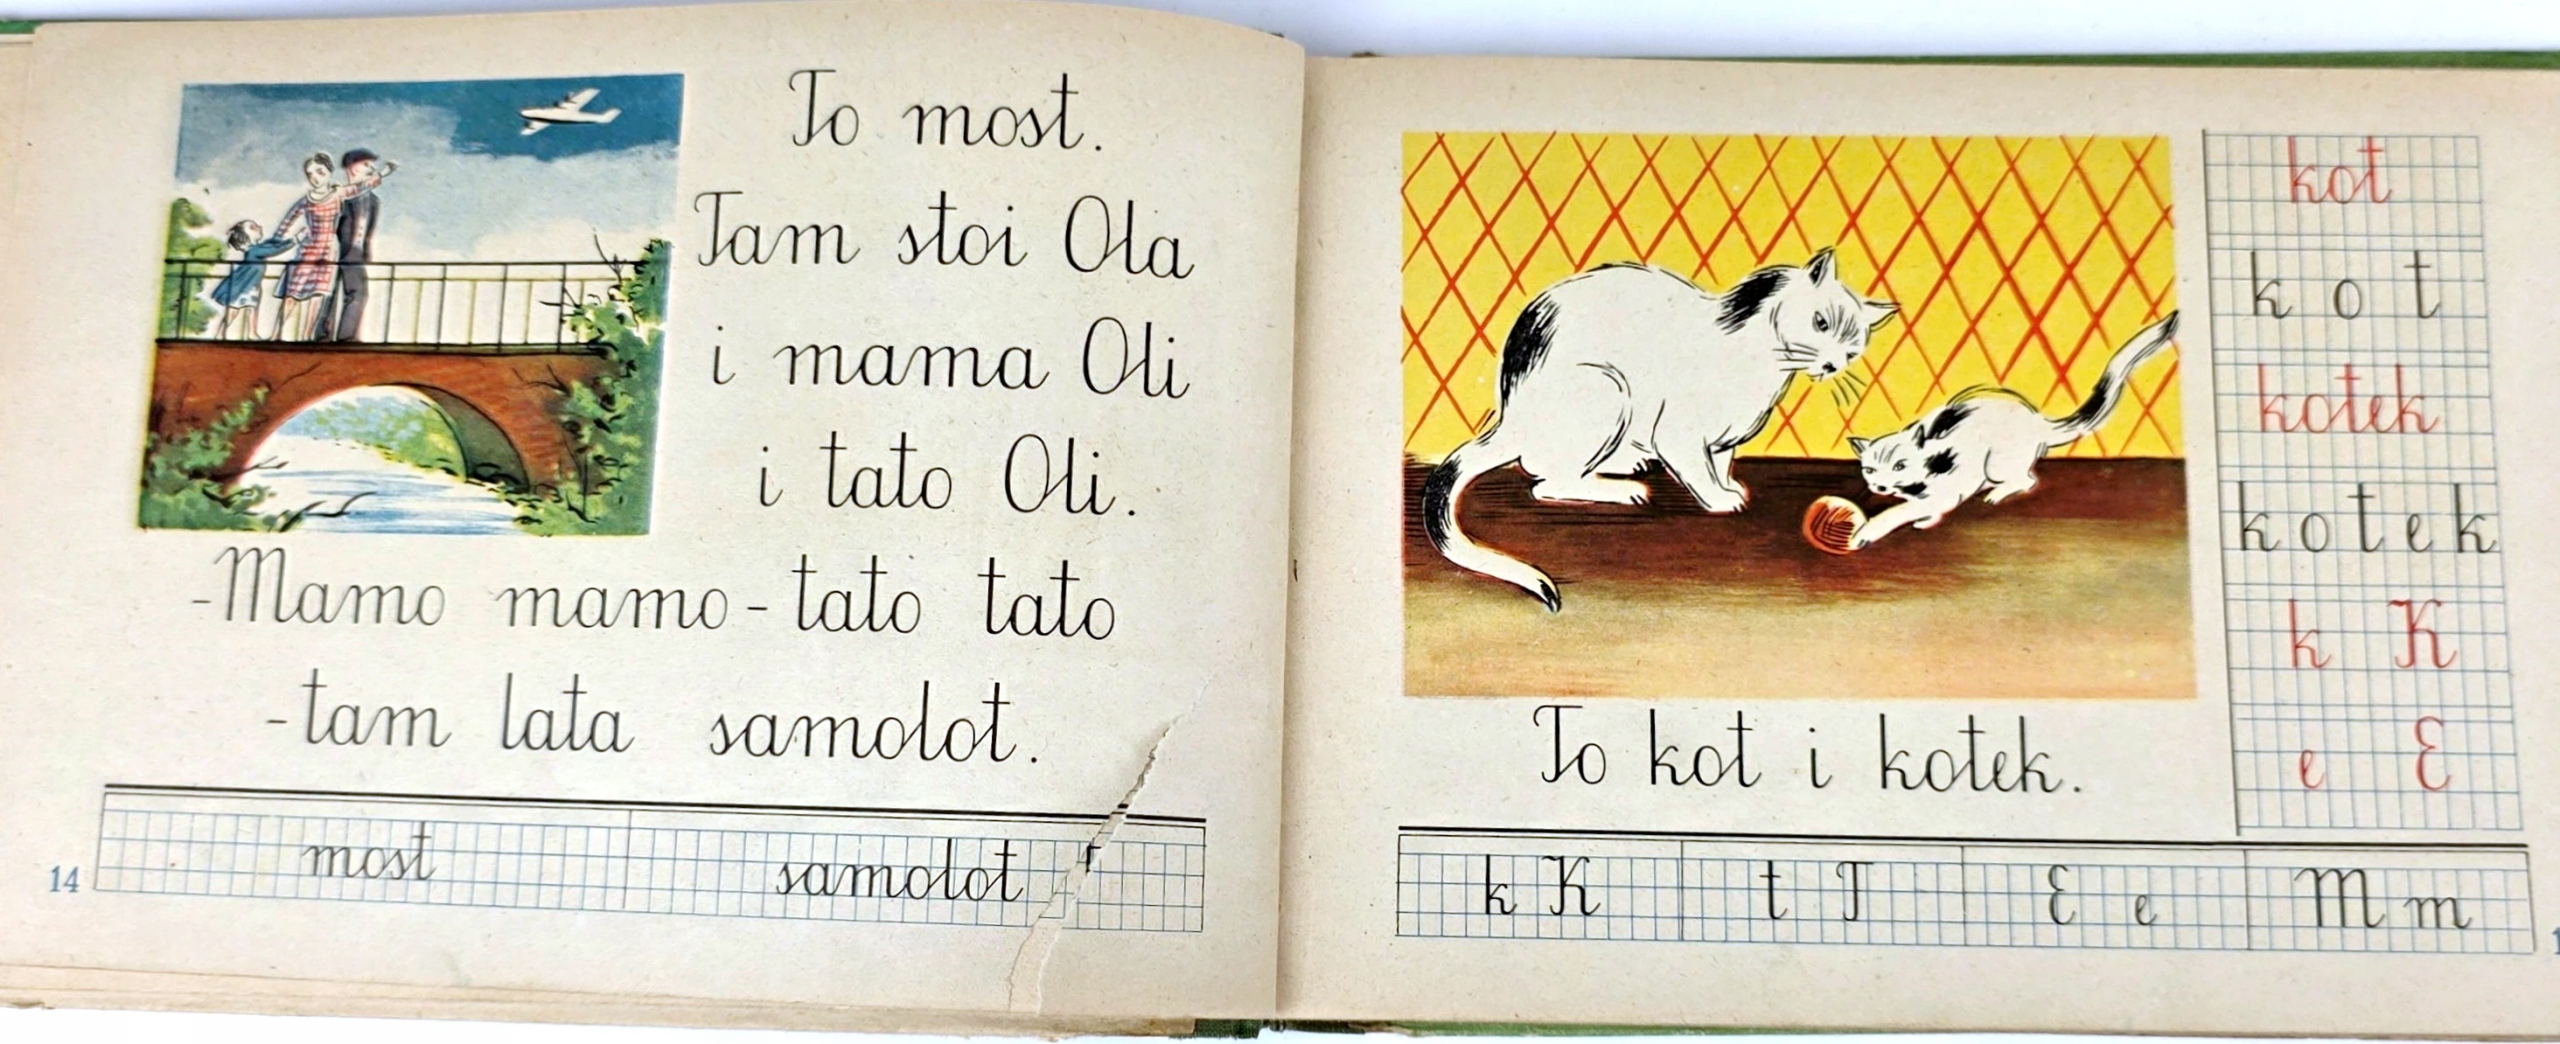 To most.
Tam stoi Ola
i mama Oli
i tato Oli.
-Mamo mamo - tato tato
-tam lata samolot.
most samolot
14
kot
k o t
kotek
k o t e k
k K
e E
To kot i kotek.
k K t T E e M m